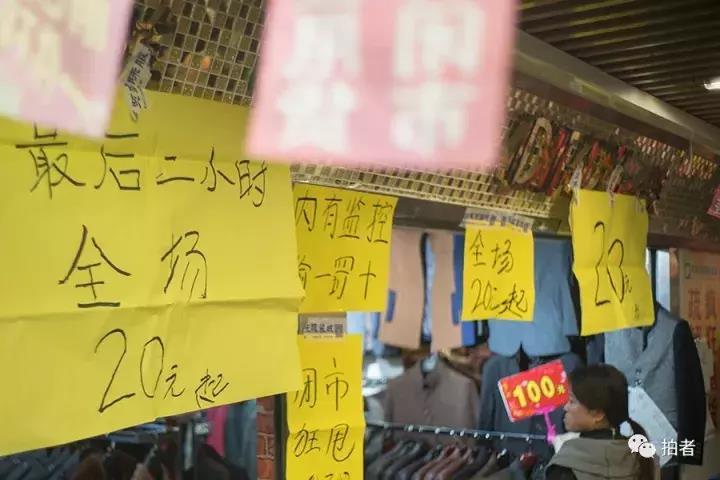 最后二小时
全场
20元起
内有监控
偷一罚十
闭市
狂甩
全场
20元起
20元
100元
闭市
拍者